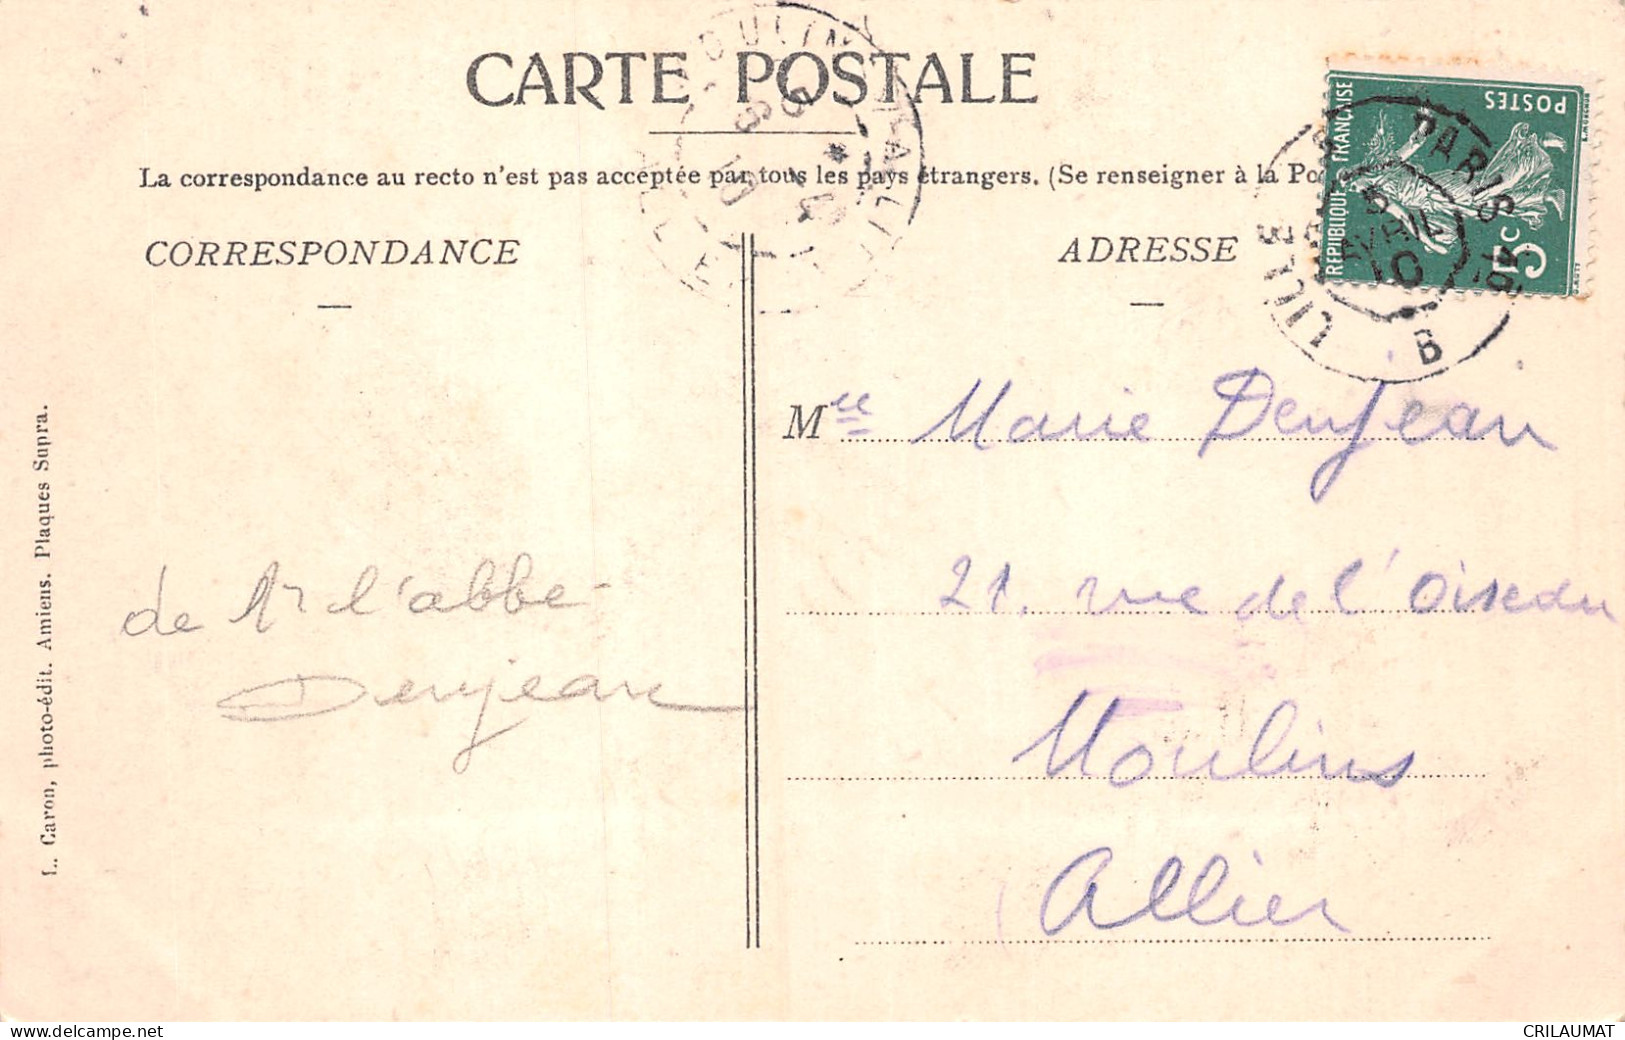 CARTE POSTALE
La correspondance au recto n'est pas acceptée par tous les pays étrangers. (Se renseigner à la Po
CORRESPONDANCE
ADRESSE
POSTES
REPUBLIQUE FRANÇAISE
5c
PARIS
LILLE
5
AVRIL
10
B
Mlle Marie Denjean
21. rue de l'Oiseau
Moulins
Allier
de Mr l'abbé
Denjean
L. Caron, photo-édit. Amiens. Plaques Supra.
delcampe.net
CRILAUMAT